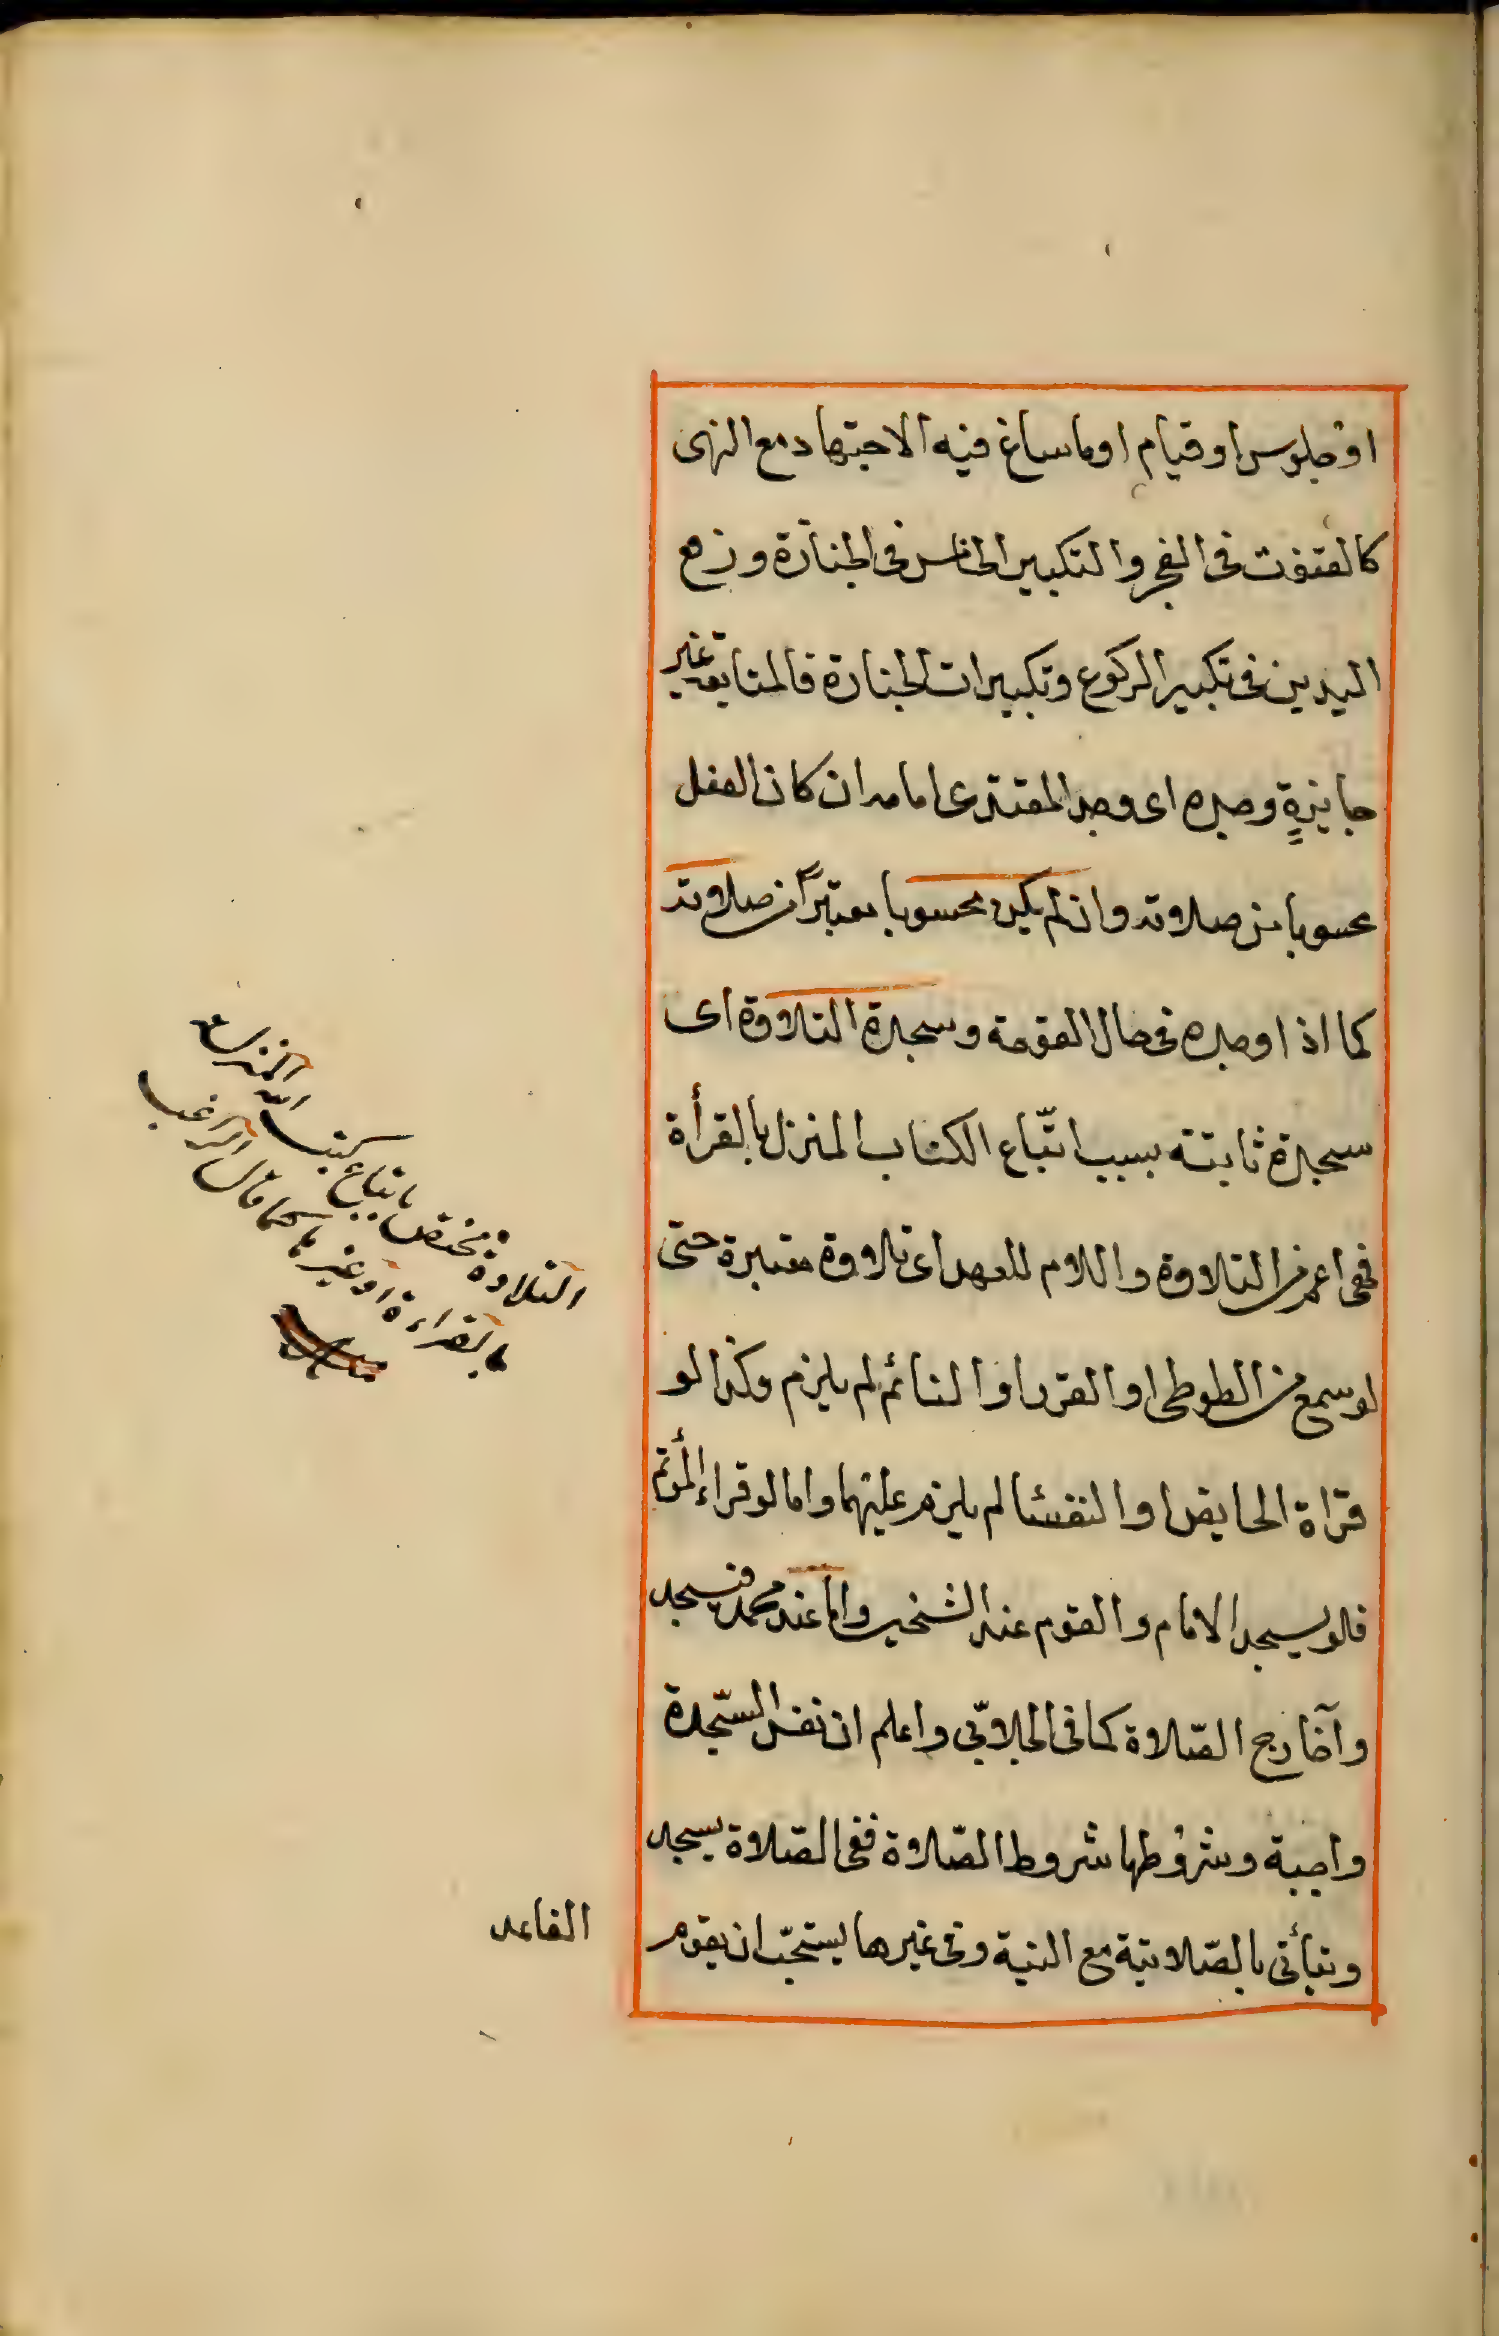 او جلوس او قيام او ما ساغ فيه الاجتهاد مع النهى
كالقنوت فى الفجر والتكبير الخامس فى الجنازة ورفع
اليدين فى تكبير الركوع وتكبيرات الجنازة فالمتابعة غير
جايزةٍ وجده اى وجد المقتدى امامه ان كان الفعل
محسوبا من صلاوته وان لم يكن محسوبا معتبرًا من صلاوته
كما اذا وجده فى حال القومة وسجدة التلاوة اى
سجدة ثابتة بسبب اتّباع الكتاب المنزل بالقرأة
فهى اعم من التلاوة واللام للعهد اى تلاوة معتبرة حتى
لو سمع من الطوطى او القرد او النائم لم يلزم وكذا لو
قرأة الحايض او النفسا لم يلزم عليهما واما لو قراء المؤتم
فلا يسجد الامام والقوم عند الشخين واما عند محمد فيسجد
وآخارج الصّلاوة كما فى الجلابّى واعلم ان نفس السّجدة
واجبة وشروطها شروط الصّلاوة ففى الصّلاوة يسجد
ويتأتى بالصّلاوتية مع النية وفى غيرها يستحبّ ان يقوم
القاعد
التلاوة مختص باتباع كتب الله المنزلة
بالقراءة او غيرها كما قال الراغب